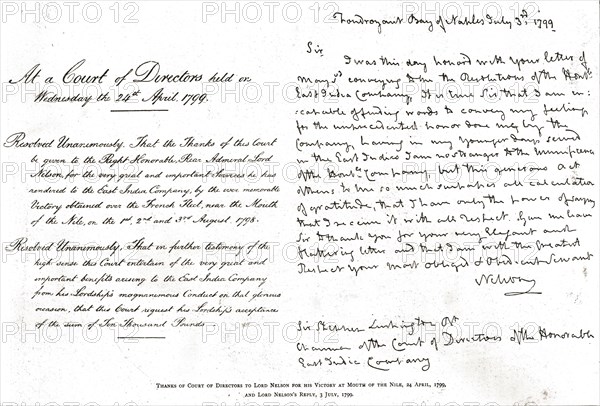 At a Court of Directors held on
Wednesday the 24th April, 1799.
Resolved Unanimously, That the Thanks of this Court
be given to the Right Honorable, Rear Admiral Lord
Nelson, for the very great and important Services he has
rendered to the East Indian Company, by the ever memorable
Victory obtained over the French Fleet, near the Mouth
of the Nile, on the 1st, 2nd and 3rd August, 1798.
Resolved Unanimously, That in further testimony of the
high sense this Court entertain of the very great and
important benefits arising to the East India Company
from his Lordship's magnanimous Conduct on that glorious
occasion, that this Court request his Lordship's acceptance
of the sum of Ten Thousand Pounds
Foudroyant Bay of Naples July 3rd, 1799
Sir
I was this day honord with your letter of
May 3d conveying to me the Resolutions of the Honble
East India Company. It is true Sir that I am in:
:capable of finding words to convey my feelings
for the unprecedented honor done me by the
Company, having in my younger days served
in the East Indies I am no stranger to the munificence
of the Honble Company, but this generous act
of theirs to me so much surpasses all calculation
of gratitude, that I have only the power of saying
that I receive it with all respect. Give me leave
Sir to thank you for your very Elegant and
flattering letter and that I am with the greatest
Respect your most obliged & Obedient Servant
Nelson
Sir Stephen Lushington Bt
Chairman of the Court of Directors of the Honorable
East India Company
Thanks of Court of Directors to Lord Nelson for his Victory at Mouth of the Nile, 24 April, 1799,
and Lord Nelson's Reply, 3 July, 1799.
PHOTO12